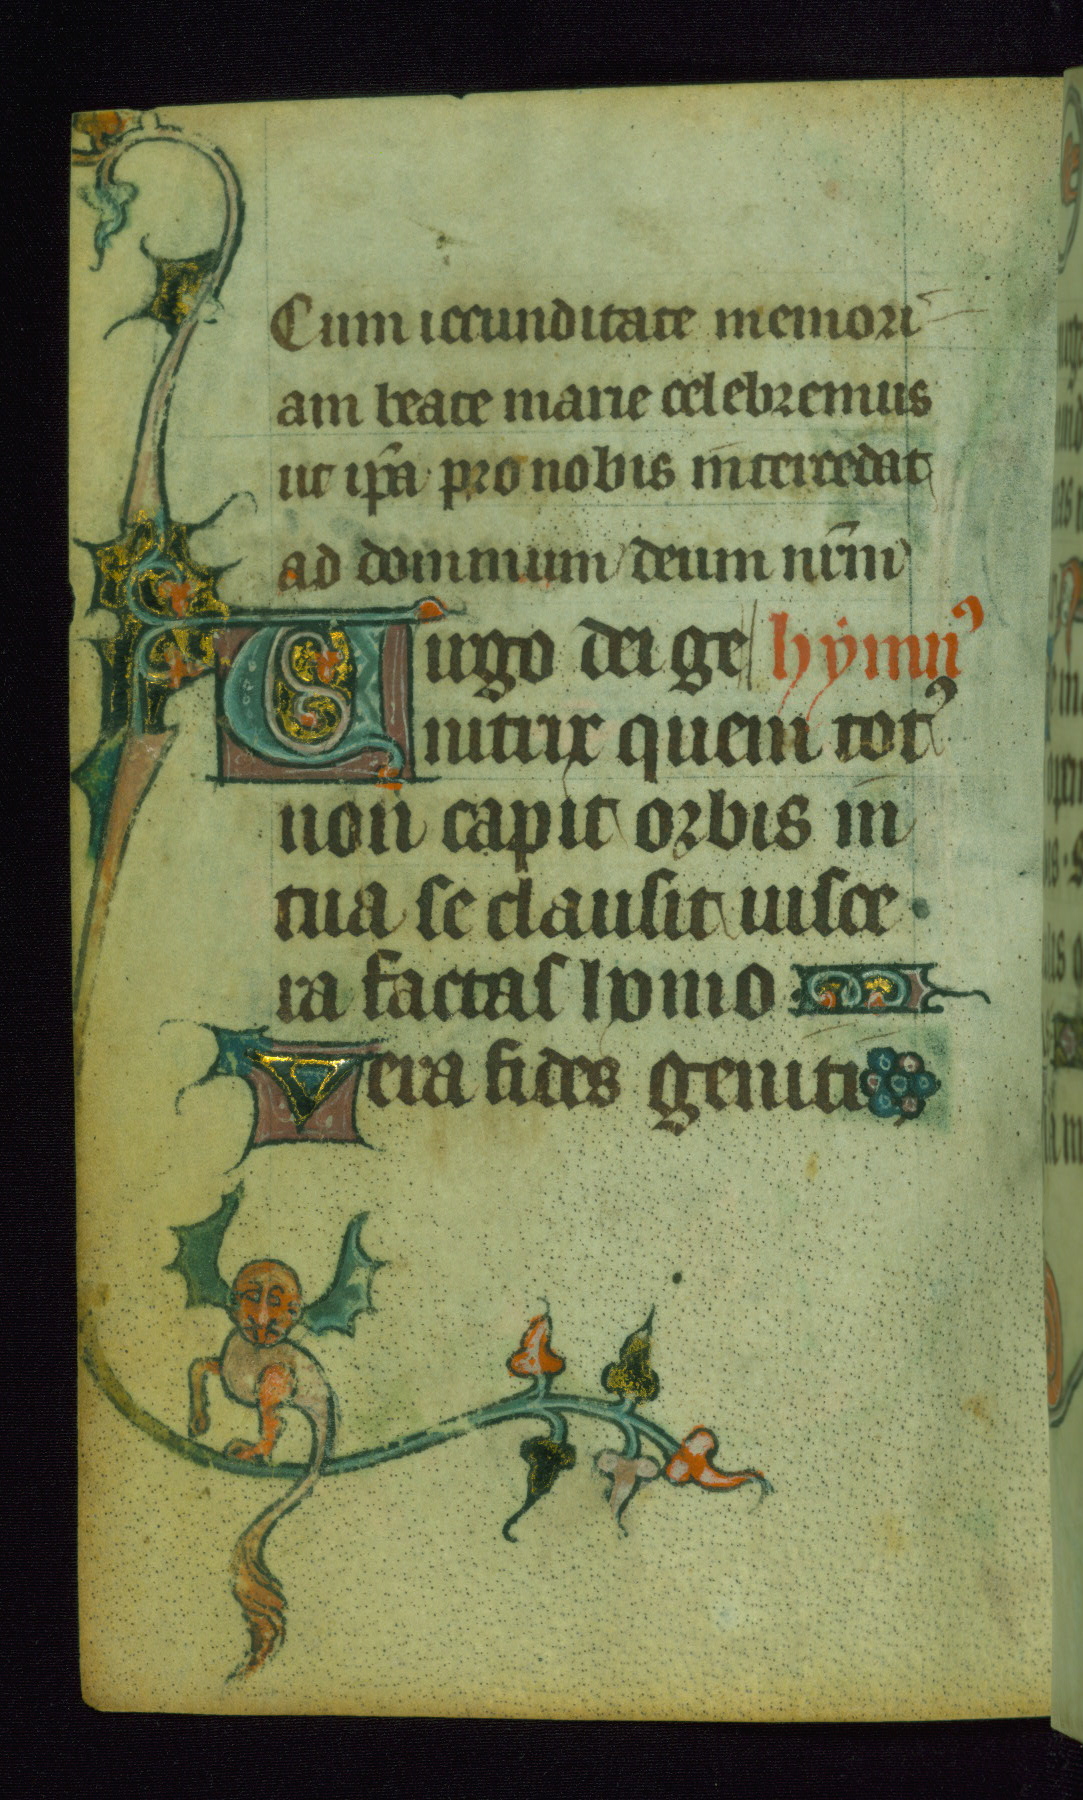 Cum iocunditate memori
am beate marie celebremus
ut ip̄a pro nobis intercedat
ad dominum deum nr̄m
Uirgo dei ge hymnꝰ
nitrix quem totꝰ
non capit orbis in
tua se clausit uisce
ra factus homo
Vera fides geniti